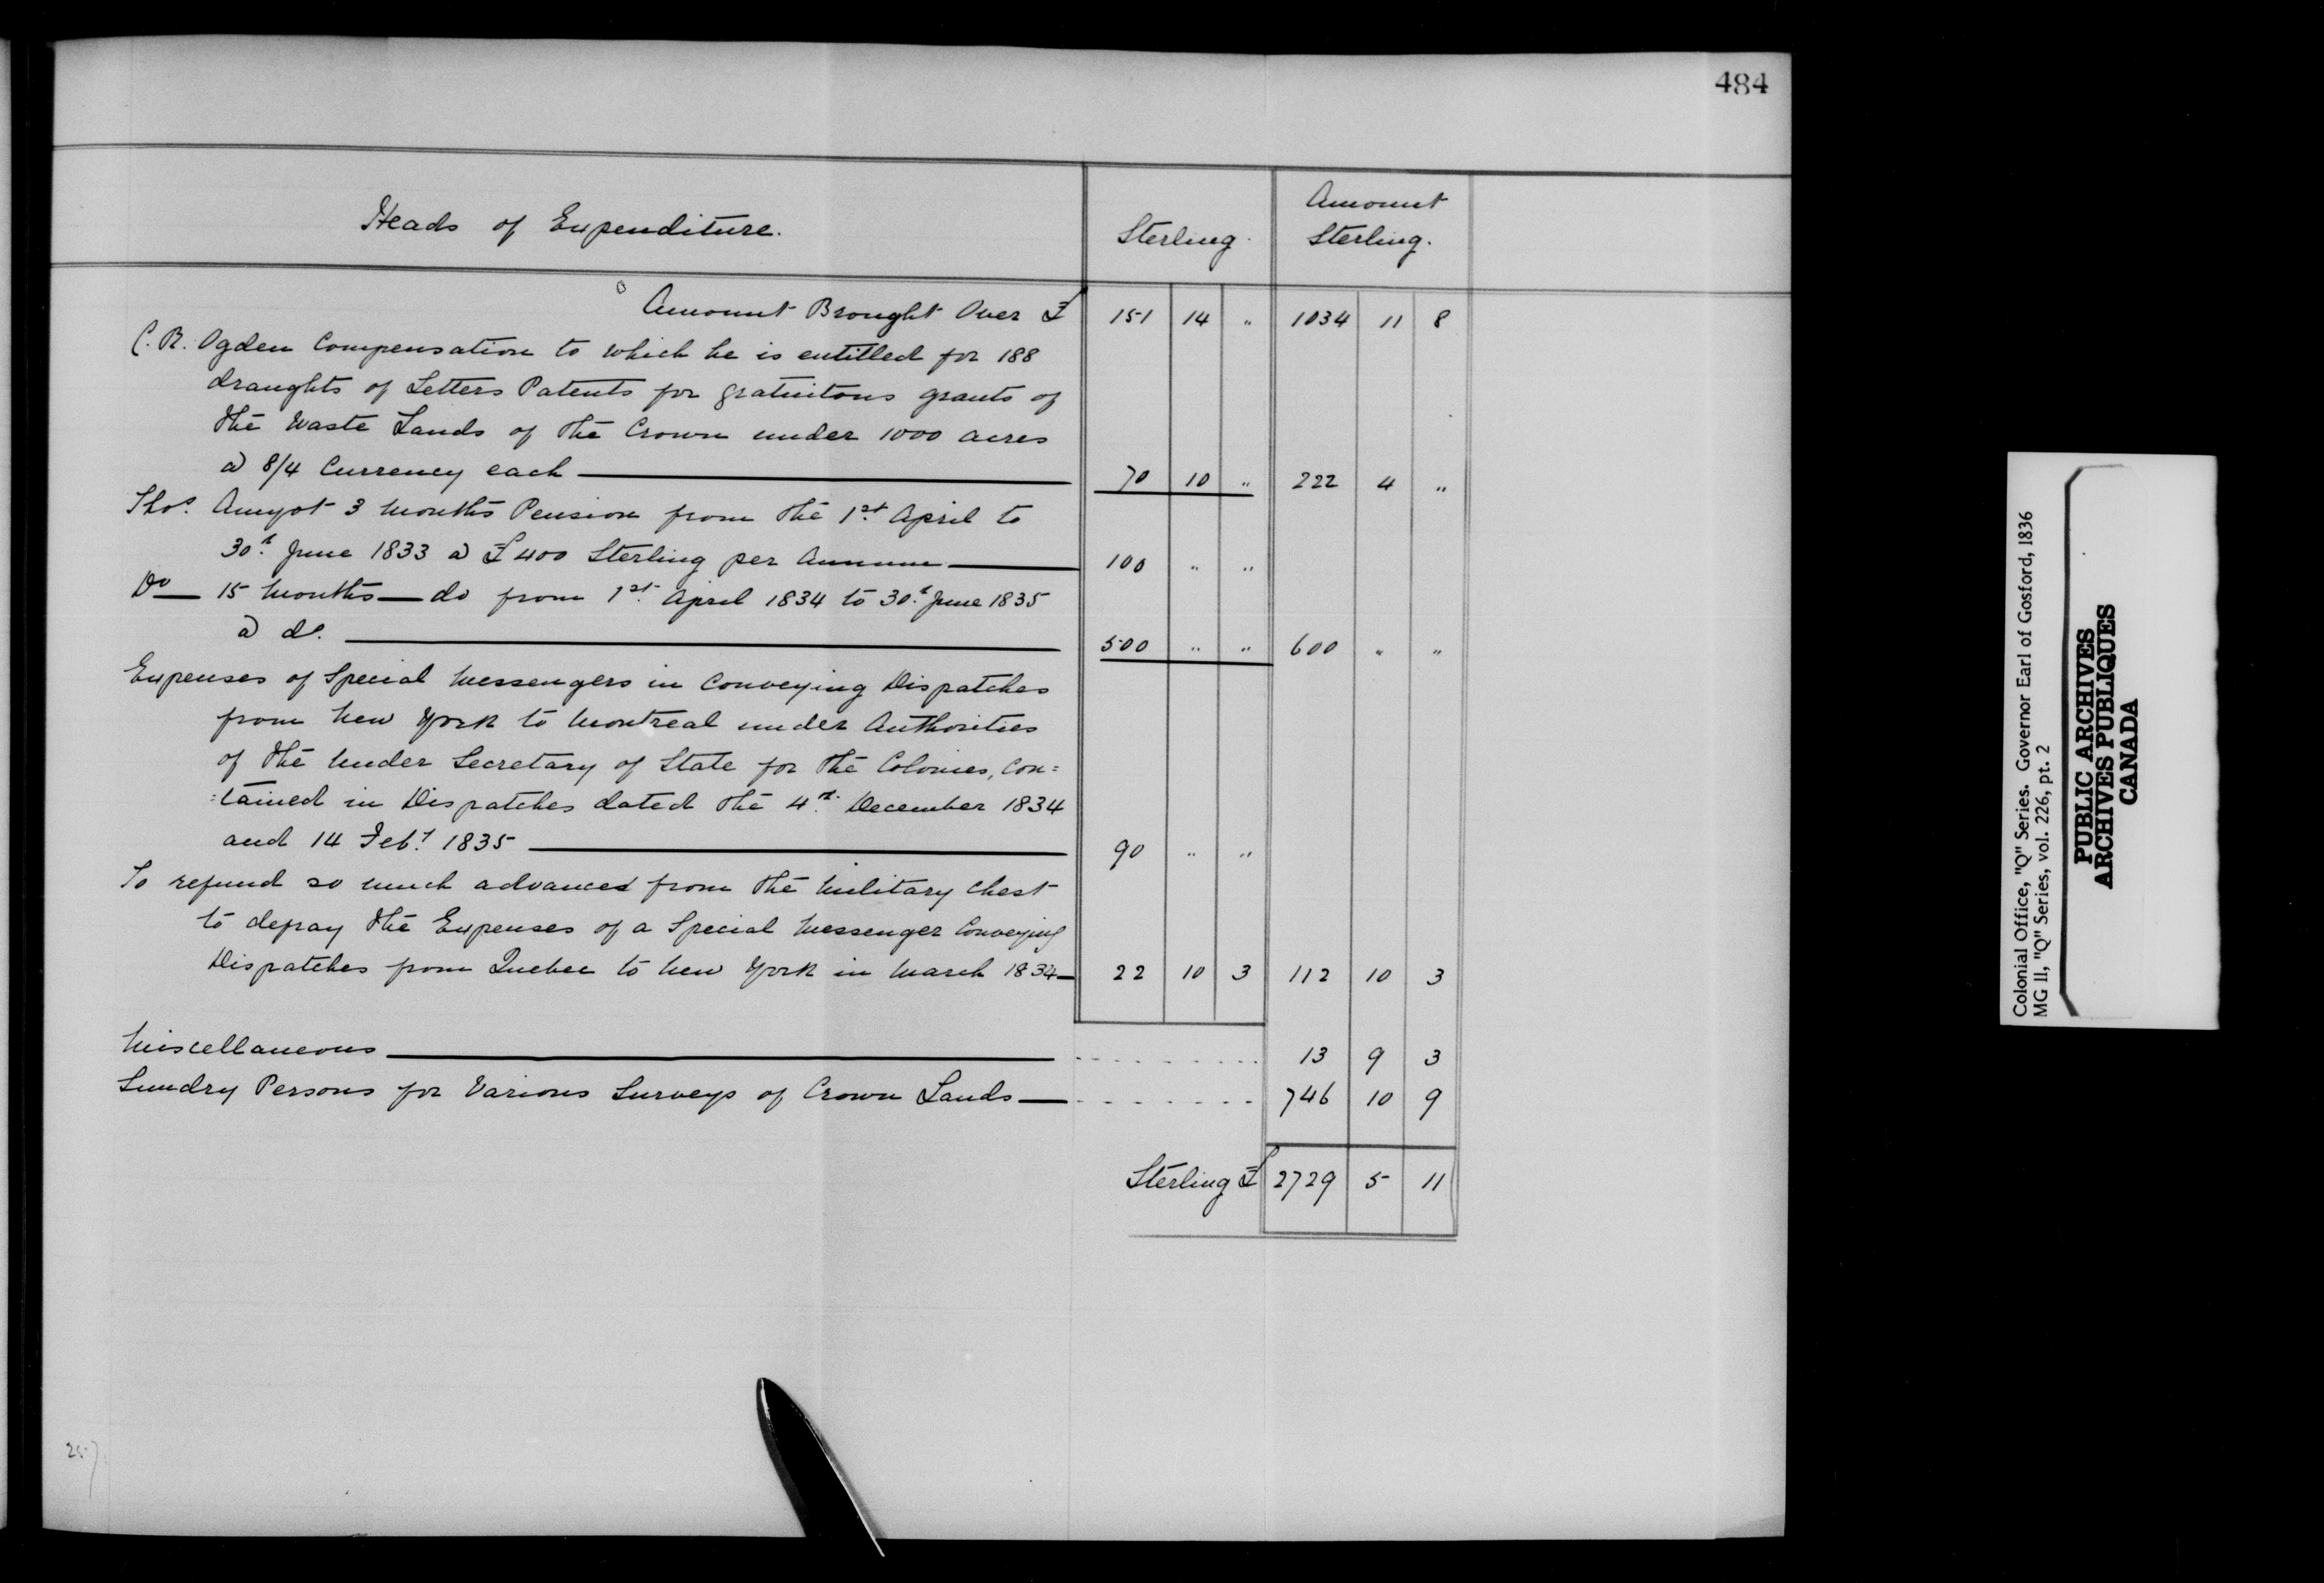 484
Heads of Expenditure.
Sterling.
Amount
Sterling.
Amount Brought Over £ 151 14 " 1034 11 8
C. R. Ogden Compensation to which he is entitled for 188
draughts of Letters Patents for gratuitous grants of
the Waste Lands of the Crown under 1000 acres
a) 8/4 Currency each 70 10 " 222 4 "
Thos. Amyot 3 months Pension from the 1st April to
30th June 1833 a) £400 Sterling per Annum 100 " "
Do 15 months do from 1st April 1834 to 30th June 1835
a) do. 500 " " 600 " "
Expenses of Special Messengers in Conveying Dispatches
from New York to Montreal under Authorities
of the Under Secretary of State for the Colonies, Con=
=tained in Dispatches dated the 4th December 1834
and 14 Feby 1835 90 " "
To refund so much advanced from the Military Chest
to defray the Expenses of a Special Messenger Conveying
Dispatches from Quebec to New York in March 1834 22 10 3 112 10 3
Miscellaneous 13 9 3
Sundry Persons for Various Surveys of Crown Lands 746 10 9
Sterling £ 2729 5 11
Colonial Office, "Q" Series. Governor Earl of Gosford, 1836
MG 11, "Q" Series, vol. 226, pt. 2
PUBLIC ARCHIVES
ARCHIVES PUBLIQUES
CANADA